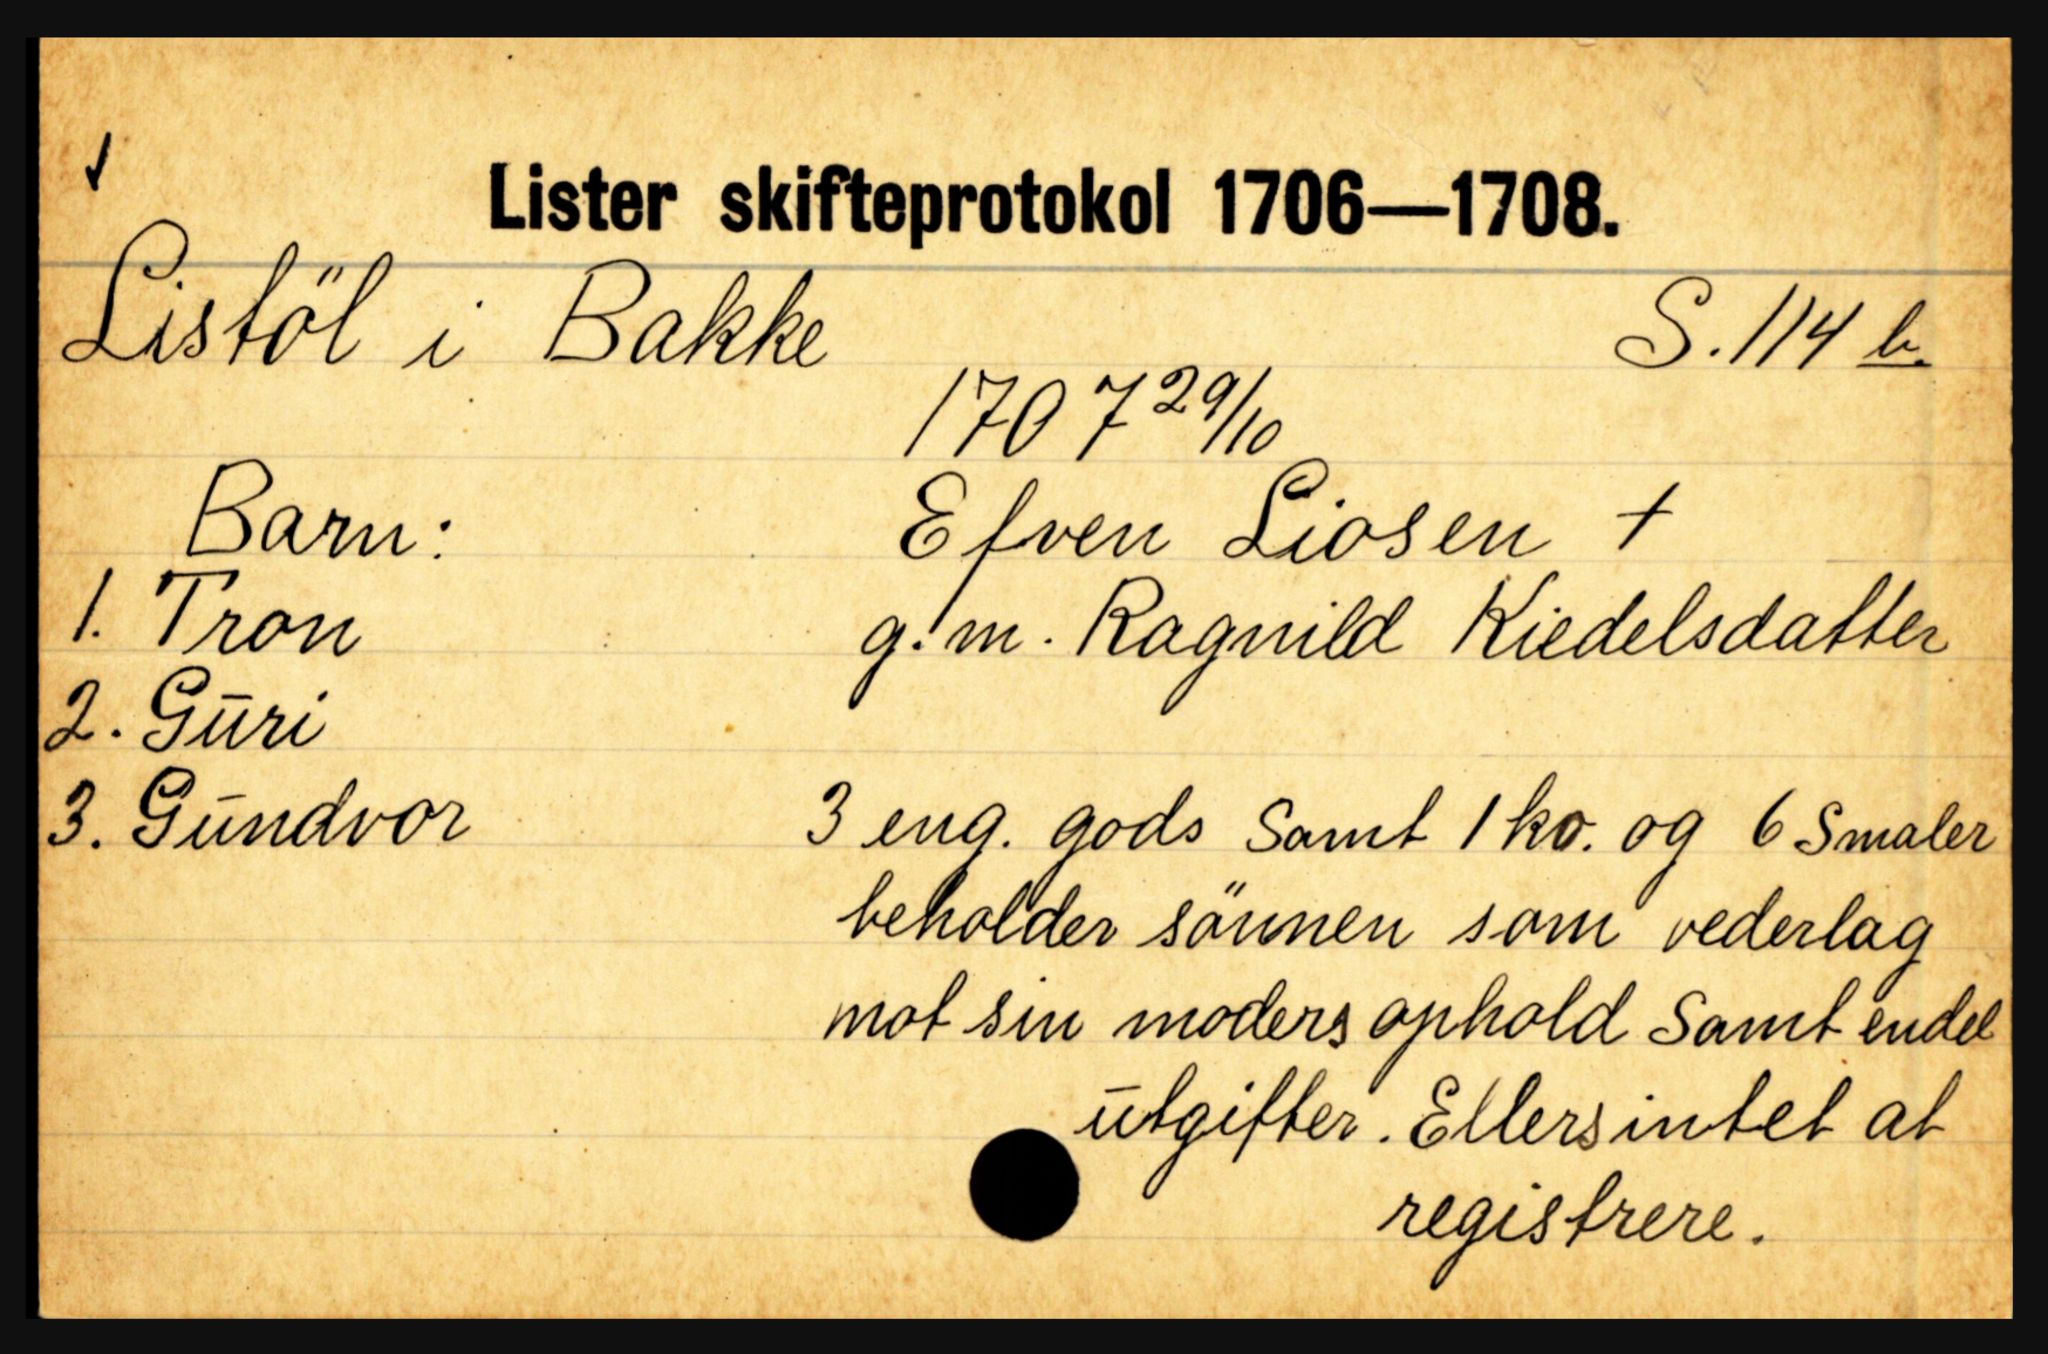 ✓
Lister skifteprotokol 1706—1708.
Listöl i Bakke S. 114 b.
1707 29/10
Barn: Efven Liosen +
1. Tron g. m. Ragnild Kiedelsdatter
2. Gūri
3. Gūndvor 3 eng. gods samt 1 ko. og 6 smaler
beholder sönnen som vederlag
mot sin moders ophold samt endel
ūtgifter. Ellers intet at
registrere.